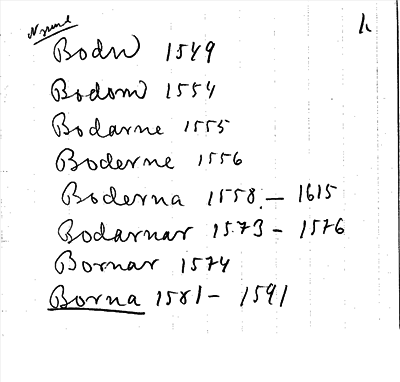 Bodn 1549
Bodom 1554
Bodarne 1555
Boderne 1556
Boderna 1558.– 1615
Bodarnar 1573 – 1576
Bornar 1574
Borna 1581 – 1591